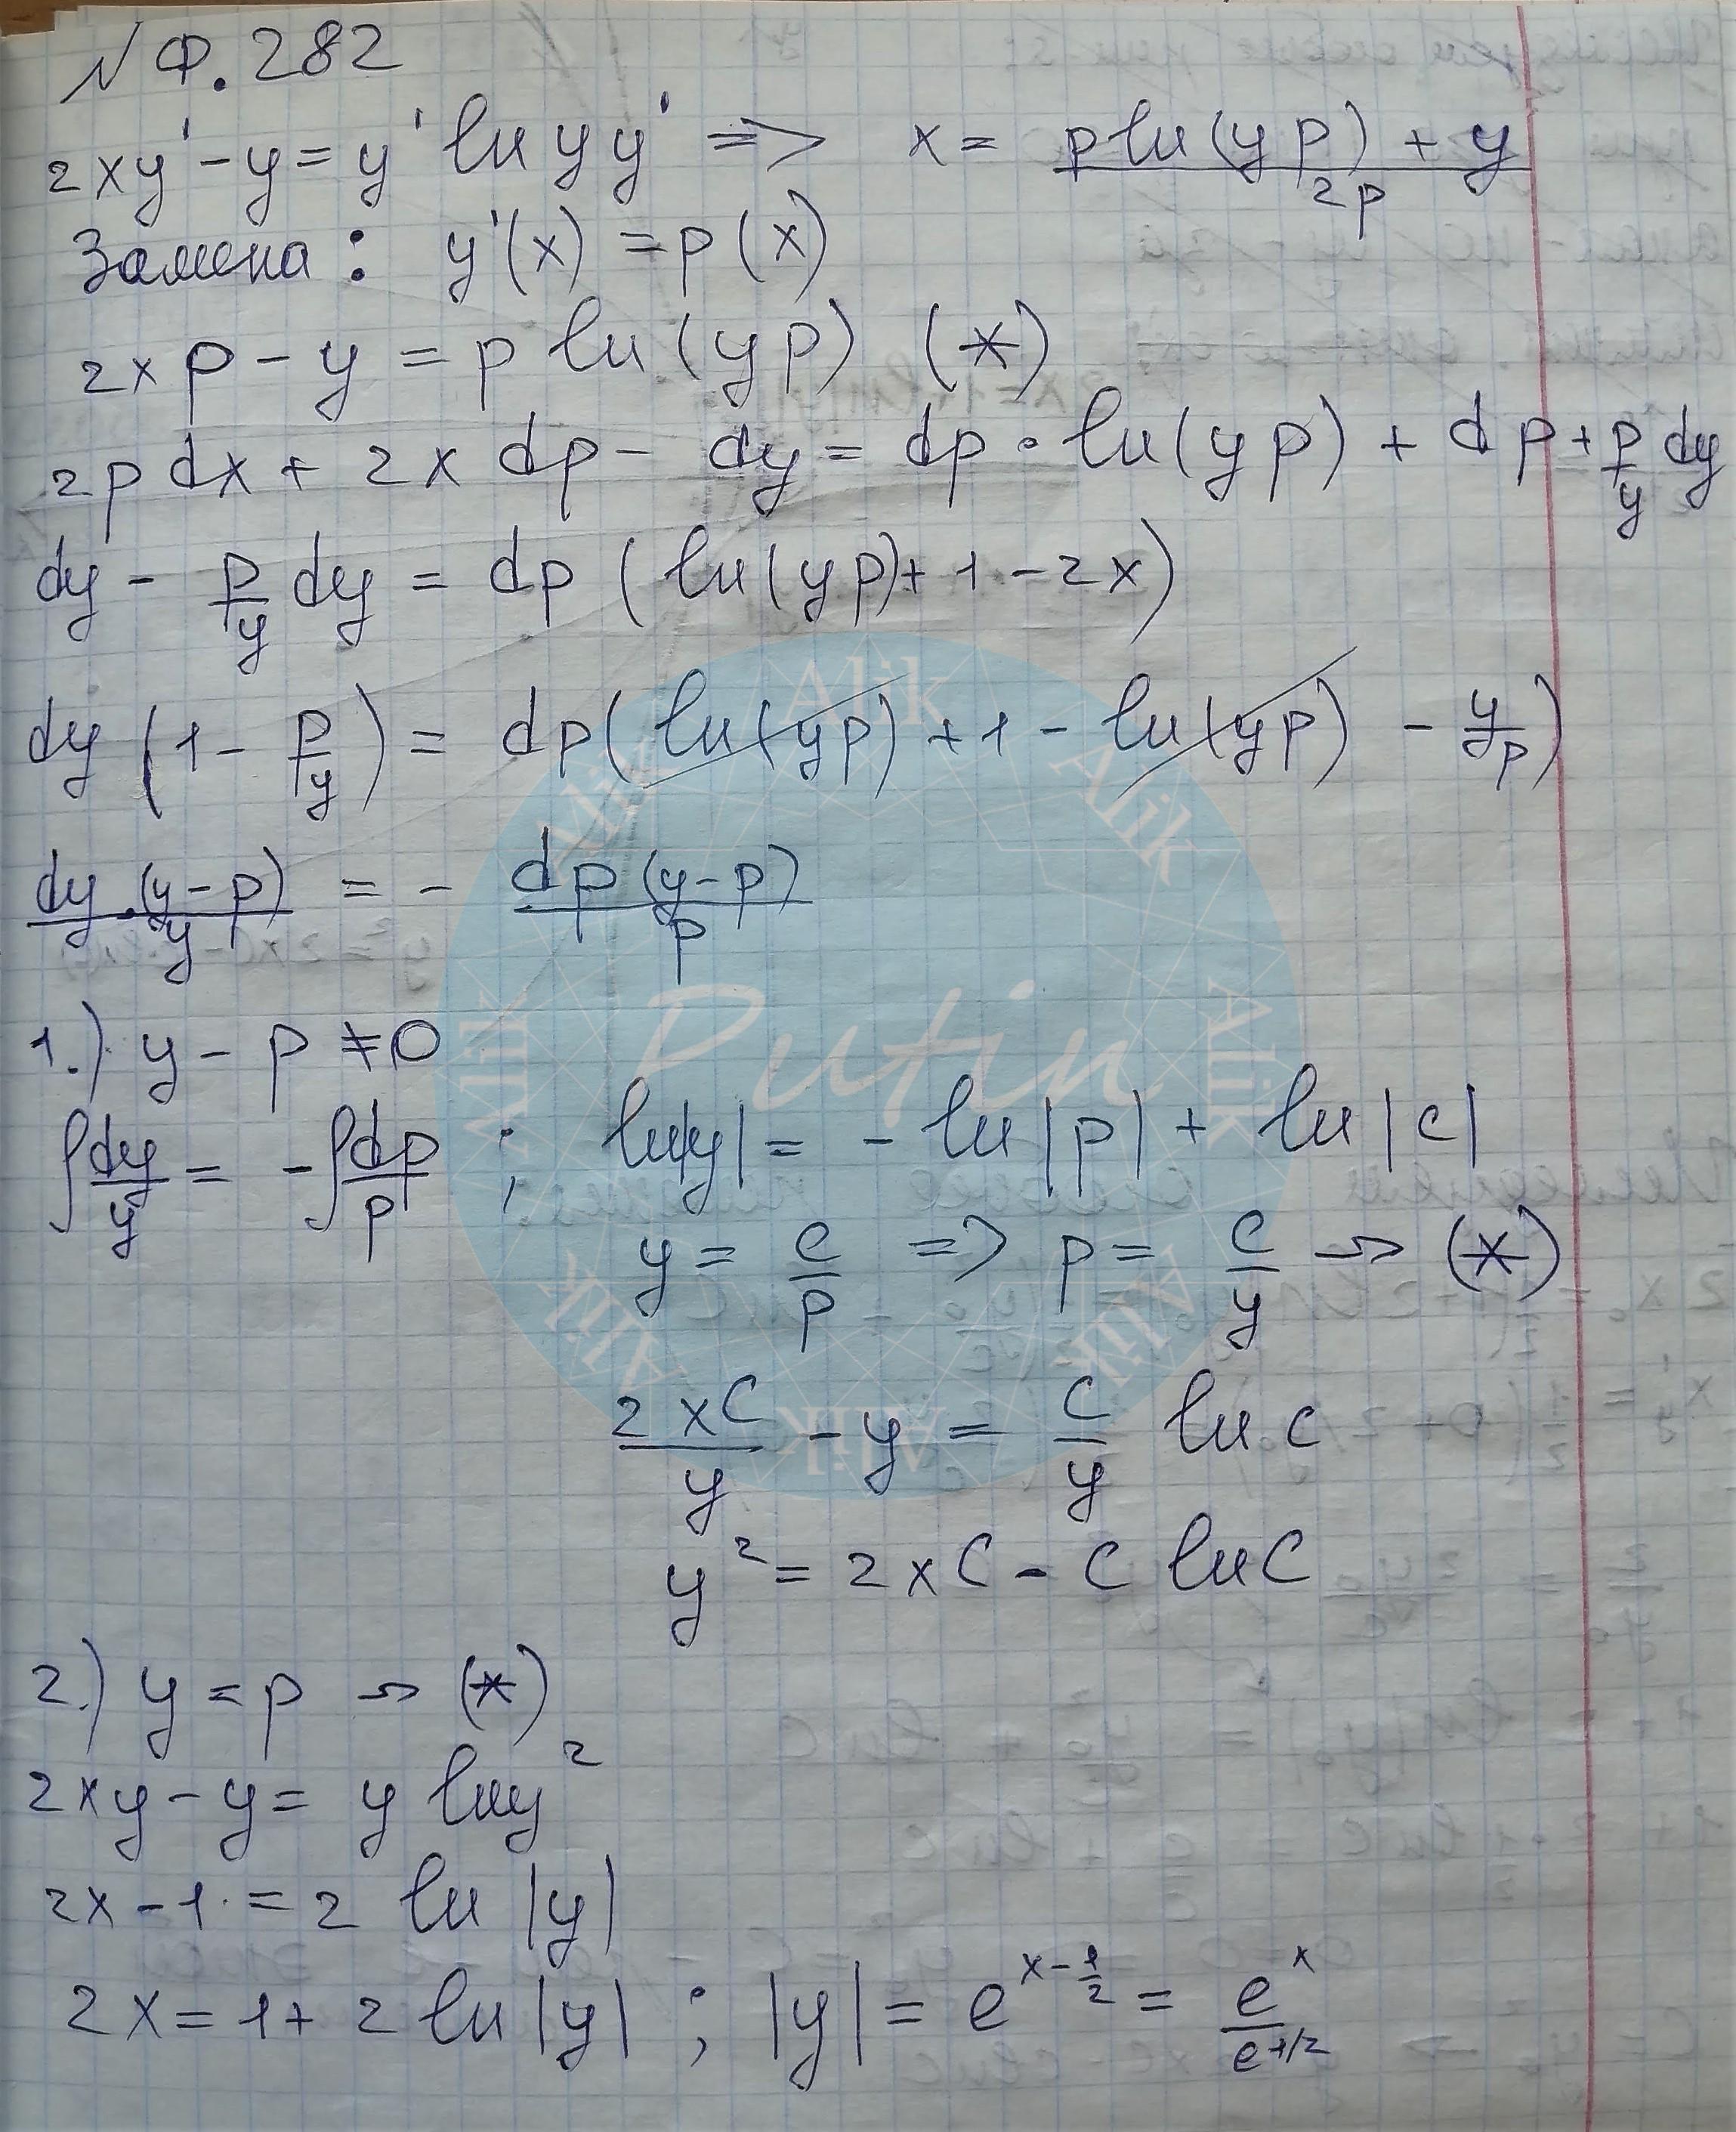 № Ф. 282
2xy' - y = y' ln yy' => x = (p ln(yp) + y)/(2p)
Замена: y'(x) = p(x)
2xp - y = p ln(yp) (*)
2p dx + 2x dp - dy = dp · ln(yp) + dp + p/y dy
dy - p/y dy = dp (ln(yp) + 1 - 2x)
dy (1 - p/y) = dp (ln(yp) + 1 - ln(yp) - y/p)
dy·(y-p)/y = - dp(y-p)/p
1.) y - p ≠ 0
∫dy/y = -∫dp/p ; ln|y| = - ln|p| + ln|c|
y = c/p => p = c/y → (*)
2xC/y - y = C/y ln c
y² = 2xC - C ln C
2.) y = p → (*)
2xy - y = y ln y²
2x - 1 = 2 ln |y|
2x = 1 + 2 ln|y| ; |y| = e^(x-1/2) = e^x/e^(+1/2)
Alik Alik Alik Alik Alik Alik Alik Alik
Putin